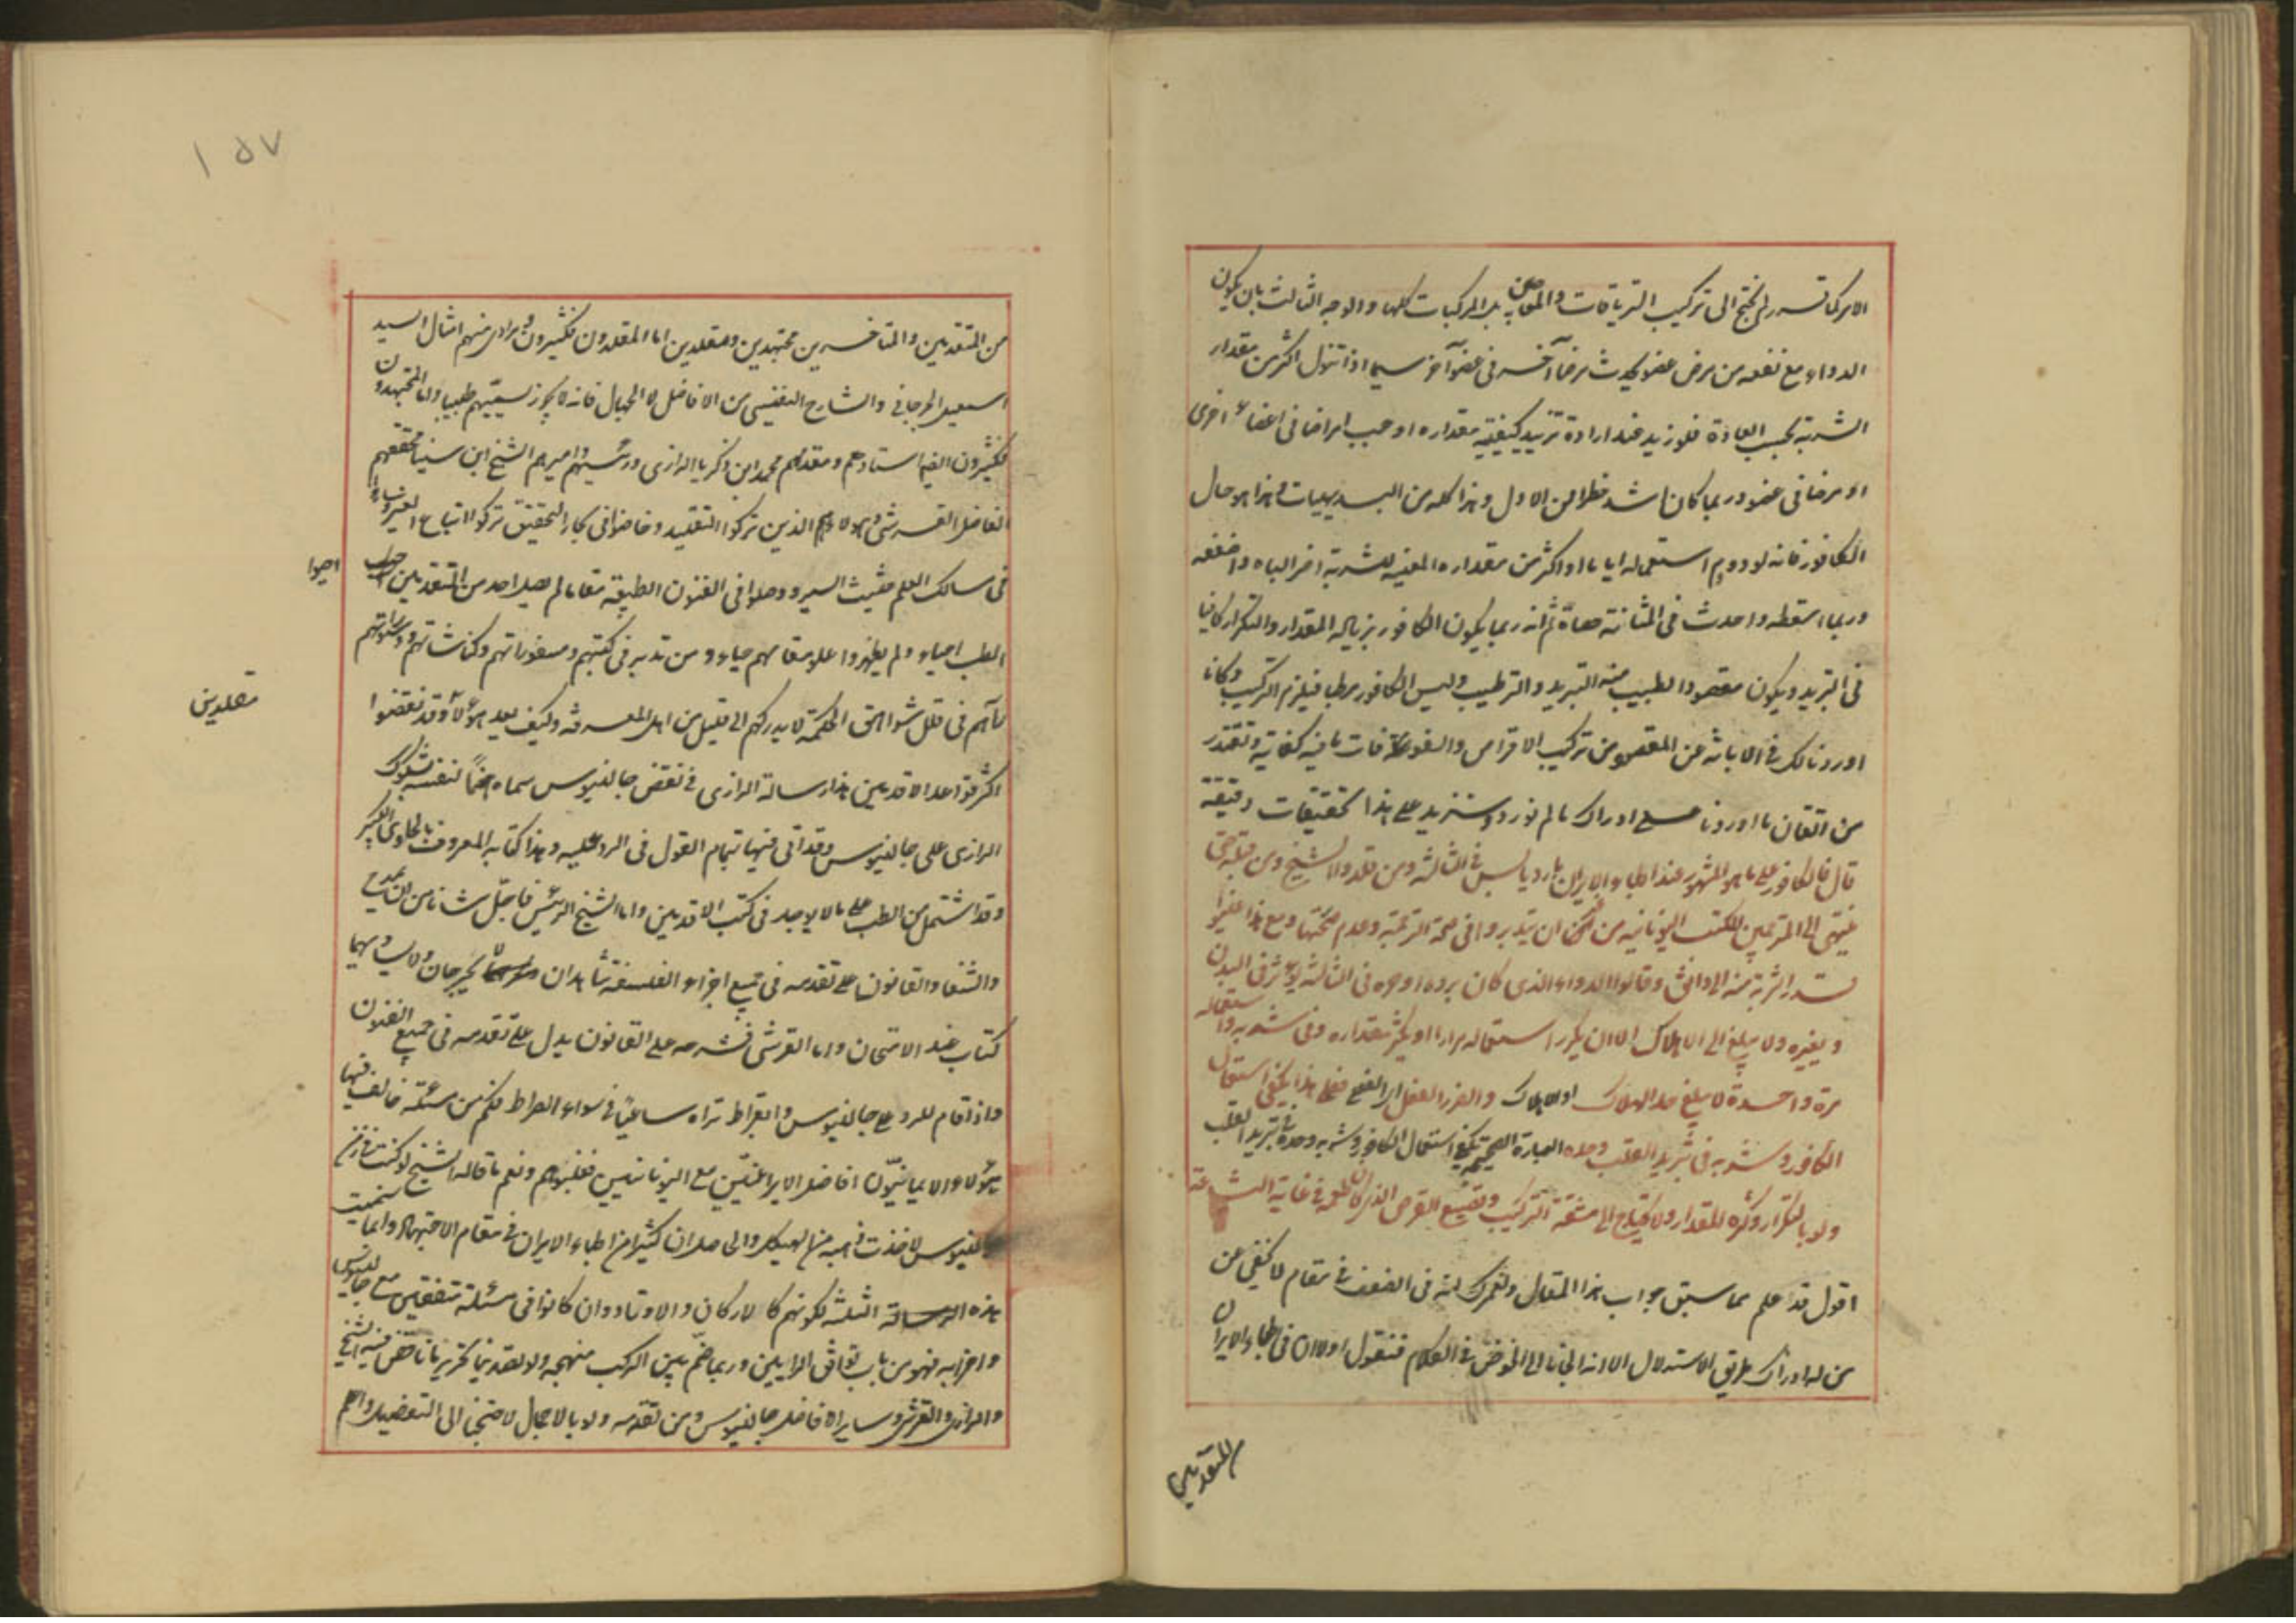 الامر كما قرر لم يحتج الى تركيب الترياقات والمعاجين بل المركبات كلها والوجه الثالث بان يكون
الدواء مع نفعه من مرض عضو يحدث مرضا آخر فى عضو آخر سيما اذا تنول اكثر من مقدار
الشربة بحسب العادة فلو زيد عند ارادة تزييد كيفيته مقداره اوجب امراضا فى اعضاء اخرى
او مرضا فى عضو وربما كان اشد خطرا من الاول وهذا كله من البديهيات وهذا هو حال
الكافور فانه لو دووم استعماله اياما او اكثر من مقداره المعينه للشربة اضر الباه واضعفه
وربما اسقطه واحدث فى المثانة حصاة ثم انه ربما يكون الكافور بزيادة المقدار والتكرار كافيا
فى التبريد ويكون مقصود الطبيب منه التبريد والترطيب وليس الكافور مرطبا فيلزم التركيب وكانا
اوردنا لك فى الابانة عن المقصود من تركيب الاقراص والسفوفات ما فيه كفاية وتقتدر
من اتقان ما اوردنا على ادراك ما لم نورد وسنزيد على هذا تحقيقات دقيقة
قال فالكافور على ما هو المشهور عند اطباء الايران بارد يابس فى الثالثة ومن قلدوا الشيخ ومن قبله حتى
ينتهى الى المترجمين للكتب اليونانيه من غير ان يتدبروا فى صحة الترجمة وعدم صحتها ومع هذا عينوا
قدر الشربة منه الى دانق وقالوا الدواء الذى كان برده او حره فى الثالثة يؤثر فى البدن
ويغيره ولا يبلغ الى الاهلاك الا ان يكرر استعماله مرارا او يكثر مقداره وفى شربه واستعماله
مرة واحدة لا يبلغ حد الهلاك او الاهلاك والضرر الفعل فعلى هذا يكفى استعمال
الكافور وشربه فى تبريد القلب وحده العبارة الصحيحة يكفى استعمال الكافور وشربه وحده فى تبريد القلب
ولو بالتكرار وكثرة المقدار ولا يحتاج الى مشقة التركيب وتضييع القرص الذى كان طعمه فى غاية البشاعة
اقول قد علم مما سبق جواب هذا المقال ولعمرك انه فى الضعف فى مقام لا يخفى عن
من له ادراك طريق الاستدلال الا انه الجأنا الى الخوض فى الكلام فنقول اولا ان فى اطباء الايران
من المتقدمين
١٥٧
من المتقدمين والمتاخرين مجتهدين ومقلدين اما المقلدون فكثيرون ومرادى منهم امثال السيد
اسمعيل الجرجانى والشارح النفيسى من الافاضل لا الجهال فانه لا يجوز تسميتهم طبيبا واما المجتهدون
فكثيرون ايضا استادهم ومقدمهم محمد ابن ذكريا الرازى ورئيسهم واميرهم الشيخ ابن سينا ومحققهم
الفاضل القرشى وهولاء هم الذين تركوا التقليد وخاضوا فى بحار التحقيق تركوا اتباع الغير وساروا
فى مسالك العلم حثيث السير ووصلوا فى الفنون الطبيه مقاما لم يصله احد من المتقدمين احيوا
احيوا
الطب احياء ولم يظهروا علو مقامهم حياء ومن تدبر فى كتبهم ومسفوراتهم وكناشاتهم
رآهم فى قلل شواهق الحكمة لا يدركهم الا قليل من اهل المعرفة وكيف يعد هؤلاء وقد نقضوا
مقلدين
اكثر قواعد الاقدمين هذا رسالة الرازى فى نقض جالينوس سماه شكوك
الرازى على جالينوس وقد اتى فيها بتمام القول فى الرد عليه وهذا كتابه المعروف بالحاوى الكبير
وقد اشتمل من الطب على ما لا يوجد فى كتب الاقدمين واما الشيخ الرئيس فاجل شانا من ان يمدح
والشفا والقانون على تقدمه فى جميع اجزاء الفلسفة شاهدان يخرجان ولا يساويهما
كتاب عند الامتحان واما القرشى فشرحه على القانون يدل على تقدمه فى جميع الفنون
واذا قام للرد على جالينوس وابقراط تراه ساعيا فى سواء الصراط فكم من مسئلة خالف فيها
هؤلاء الايمانيون افاضل الايرانيين مع اليونانيين فغلبوهم ونعم ما قاله الشيخ لو كنت فى زمن
جالينوس لاخذت والحاصل ان كثيرا من اطباء الايران فى مقام الاجتهاد وانما سميت
هذه الثلثة لكونهم كالاركان والاوتاد وان كانوا فى مسئلة متفقين مع جالينوس
واحزابه فهو من باب توافق الرايين وربما ضم بين المركب منهجه ولو لقد نرى تحريريا ناقض فيه الشيخ
والرازى والقرشى وساير الافاضل جالينوس ومن تقدمه ولو بالاجمال لاحتجنا الى التفصيل واعلم